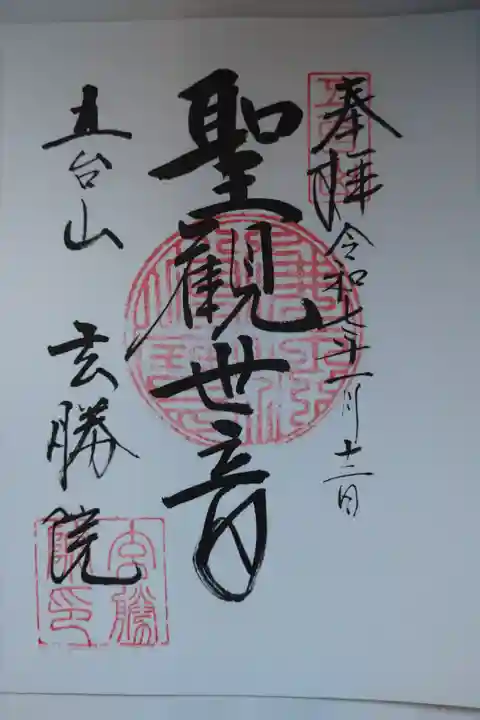 奉拝 令和七年一月十二日
聖観世音
五台山 玄勝院
玄勝
院印